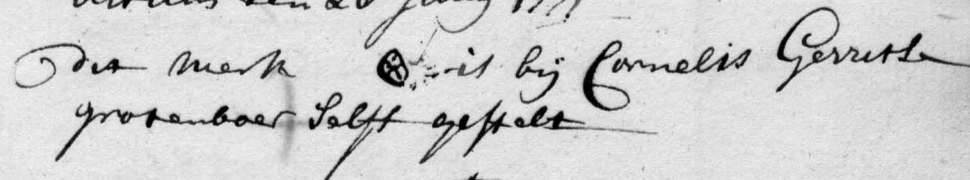 den 20 Juny
Dit merk is bij Cornelis Gerritse
grotenboer Selft gestelt